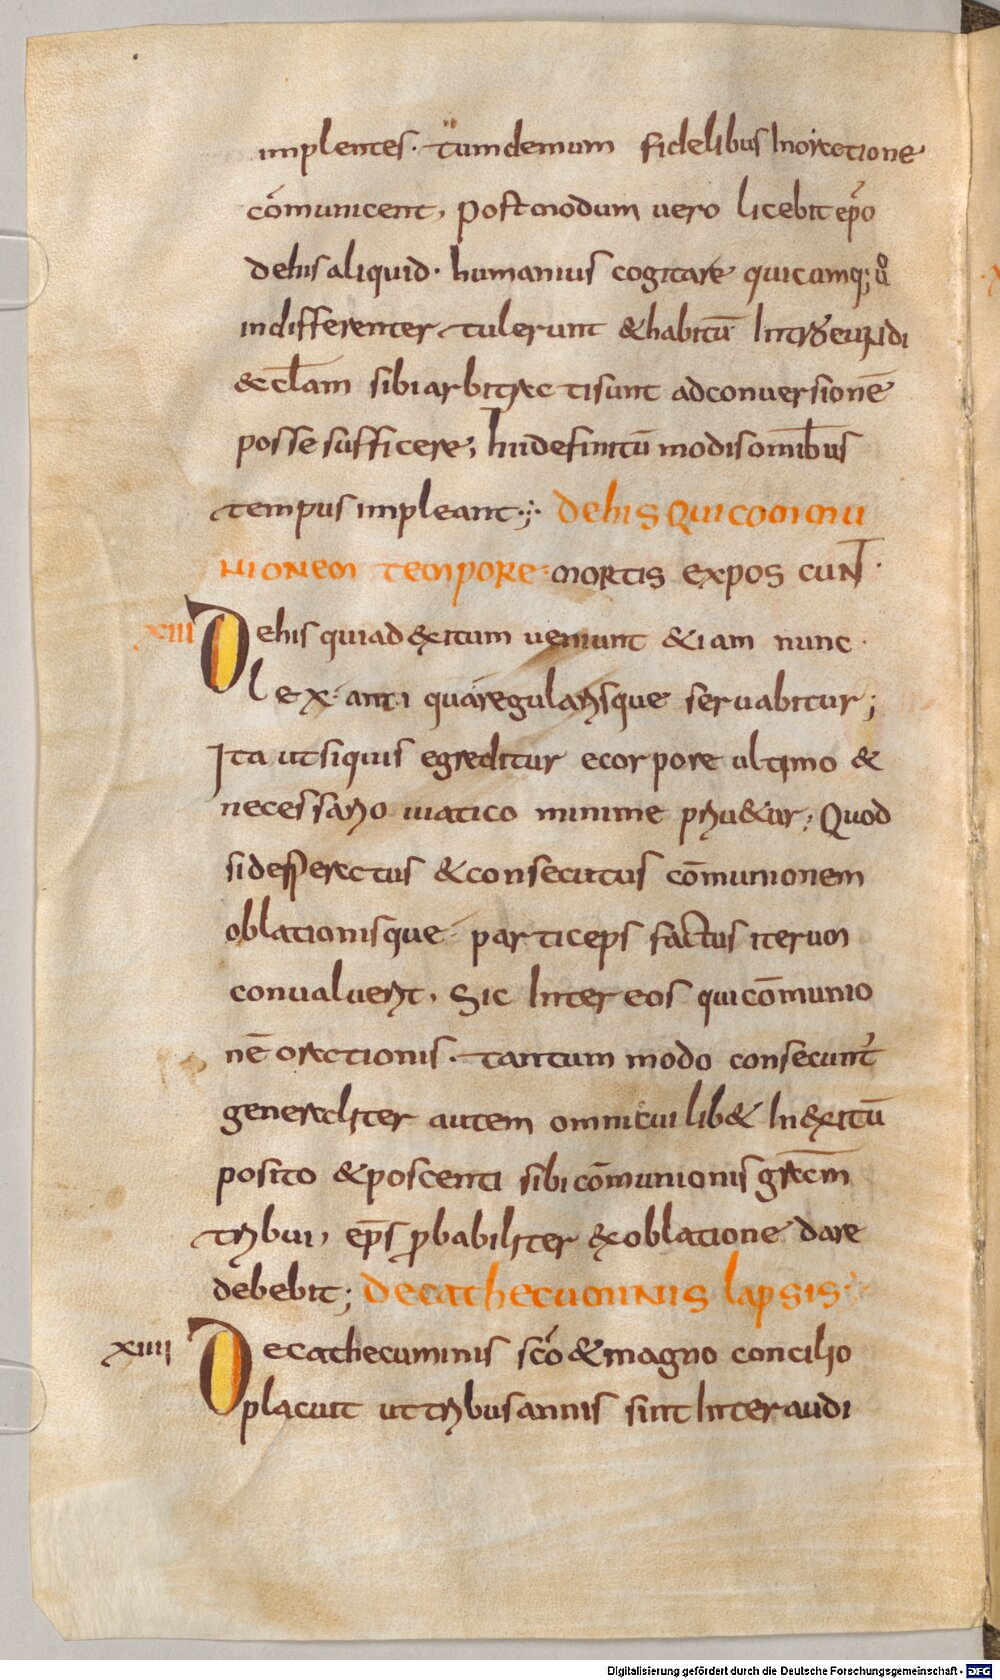 implentes· tum demum fidelibus In oratione
cōmunicent, postmodum uero licebit ep̄o
dehis aliquid· humanius cogitare quicumq; ū
indifferenter tulerunt & habitū Intr& eundi
& ecl̄am sibi arbitrati sunt ad conuersionē
posse sufficere, hi definitū modis omnib̄us
tempus impleant·:· dehis qui commu
nionem tempore· mortis exposcunt·
xiii Dehis qui ad exitum ueniunt &iam nunc·
lex· anti qua regularisque seruabitur;
Ita ut siquis egreditur e corpore ultimo &
necessario uiatico minime priu&ur; Quod
si desperatus & consecutus cōmunionem
oblationisque particeps factus iterum
conualuerit, Sic Inter eos qui cōmunio
nē orationis· tantum modo consecunt̄
generaliter autem omni cui lib& In exitū
posito & poscenti sibi cōmunionis grat̄m
tribui, ep̄s probabiliter ex oblatione dare
debebit; de cathecuminis lapsis·
xiiii De cathecuminis sc̄o & magno concilio
placuit ut tribus annis sint Inter audi
Digitalisierung gefördert durch die Deutsche Forschungsgemeinschaft - DFG